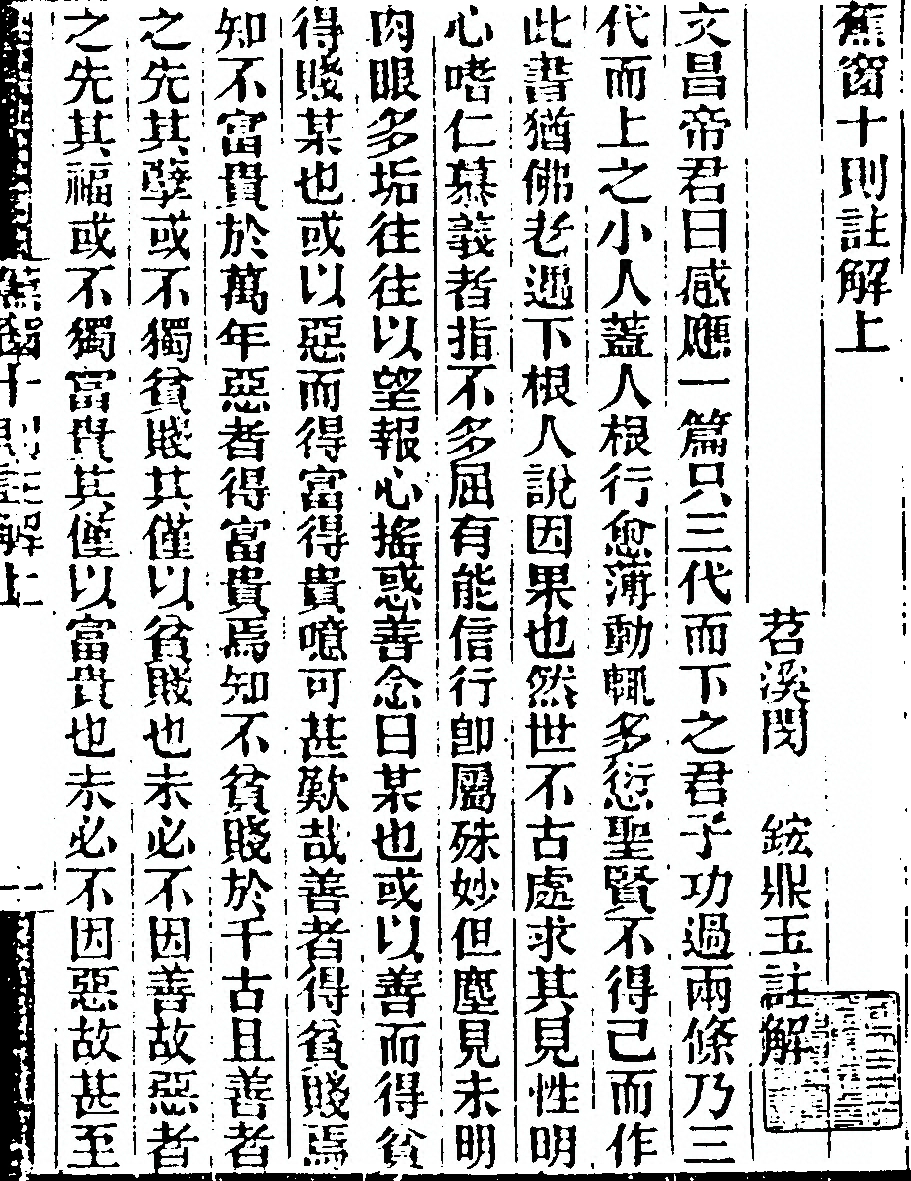 蕉窗十則註解上
苕溪閔　鉉鼎玉註解
文昌帝君曰感應一篇只三代而下之君子功過兩條乃三
代而上之小人蓋人根行愈薄動輒多愆聖賢不得已而作
此書猶佛老遇下根人說因果也然世不古處求其見性明
心嗜仁慕義者指不多屈有能信行卽屬殊妙但塵見未明
肉眼多垢往往以望報心搖惑善念曰某也或以善而得貧
得賤某也或以惡而得富得貴噫可甚歎哉善者得貧賤焉
知不富貴於萬年惡者得富貴焉知不貧賤於千古且善者
之先其孽或不獨貧賤其僅以貧賤也未必不因善故惡者
之先其福或不獨富貴其僅以富貴也未必不因惡故甚至
蕉窗十則註解上
一